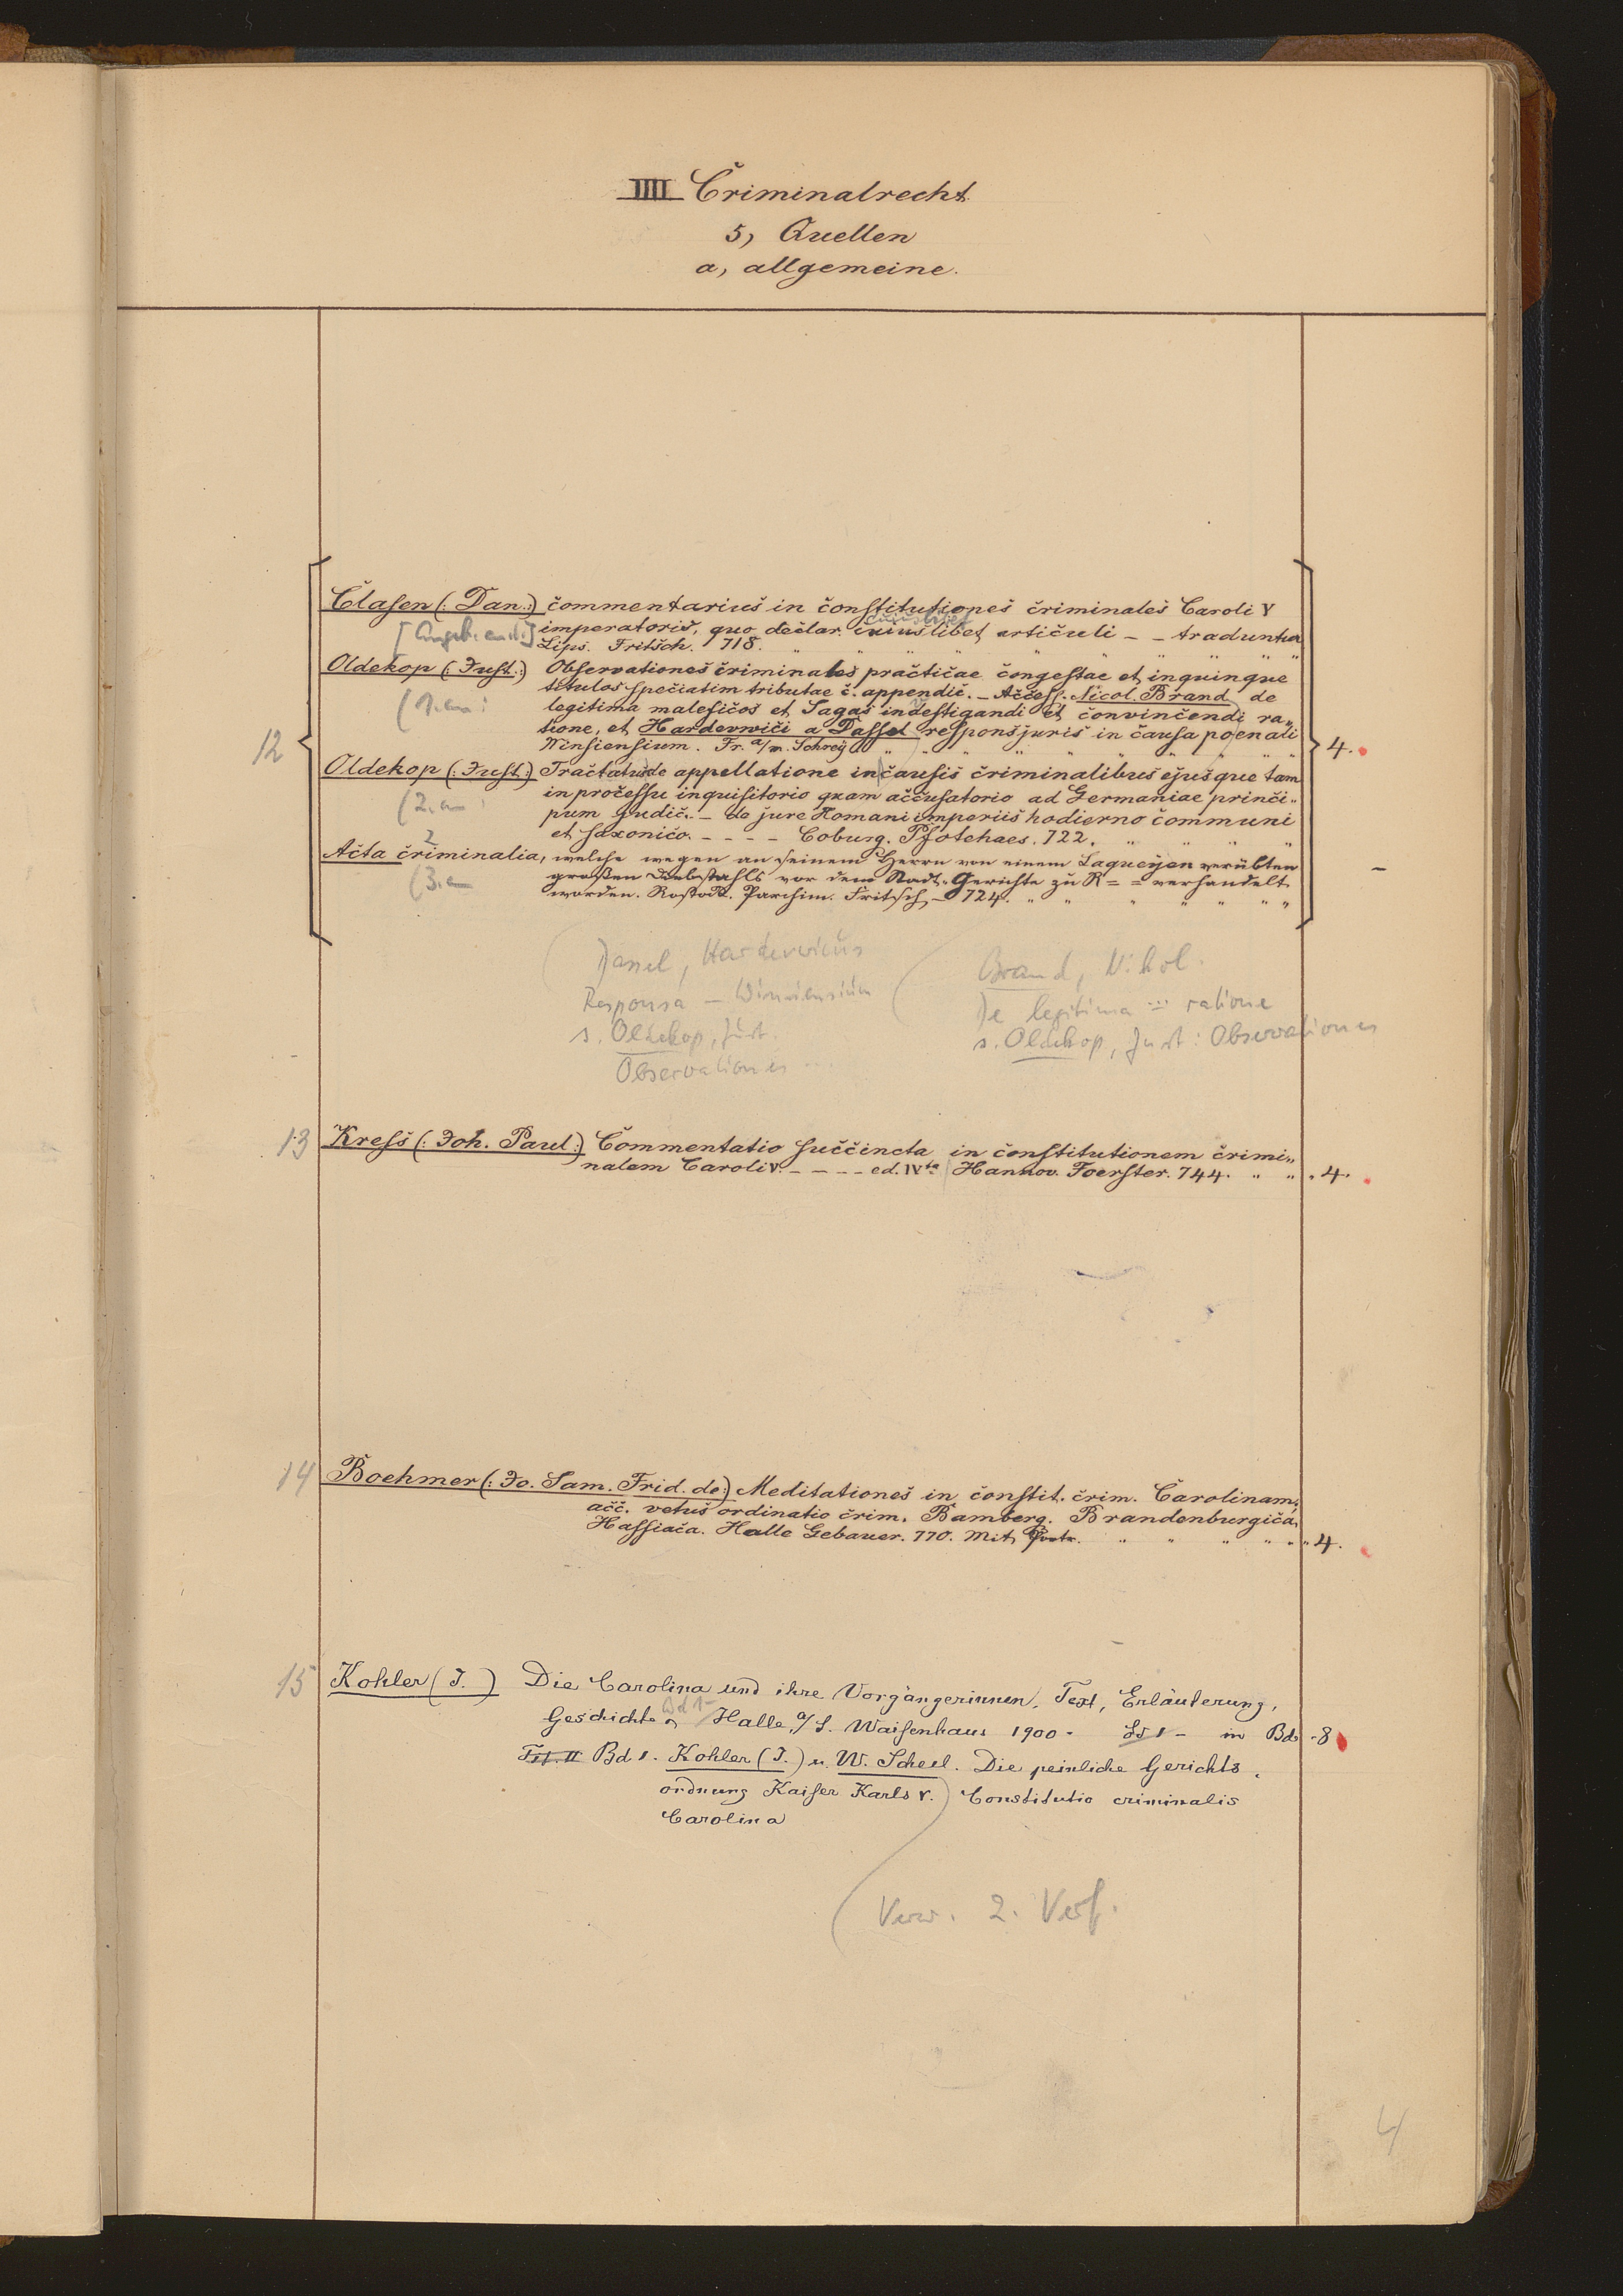 IIII Criminalrecht
5, Quellen
a, allgemeine.
12
Clasen (: Dan.:) commentarius in constitutiones criminales Caroli V
imperatoris, quo declar. cuiuslibet articuli – – traduntur
cuiuslibet
[Angeb. an d.]
Lips. Fritsch. 718. " " " " " " " " "
Oldekop (: Just.:) Observationes criminales practicae congestae et in quinque
titulos speciatim tributae c. appendic. – Access. Nicol. Brand de
(1. an:
legitima maleficos et Sagas indestigandi et convincendi ra„
tione, et Hardewici a Dassel respons juris in causa poenali
Winsiensium. Fr. a/m. Schrey " " " " " " " " 4.
Oldekop (: Just.:) Tractatus de appellatione in causis criminalibus ejusque tam
in processu inquisitorio quam accusatorio ad Germaniae princi„
(2. an:
pum judic. – de jure Romani imperiis hodierno communi
et saxonico. – – – – Coburg. Pfotehaes. 722. " " " " "
2
Acta criminalia, welche wegen an seinem Herrn von einem Laqueyen verübten
(3. an
großen Diebstahls vor dem Stadt-Gerichte zu R = = verhandelt –
worden. Rostock. Parchim. Fritsch – 724. " " " " " " "
Dassel, Hardewicus
Responsa – Winsiensium
s. Oldekop, Just.
Observationes ...
Brand, Nikol.
De legitima ... ratione
s. Oldekop, Just: Observationes
13 Kress (: Joh. Paul:) Commentatio succincta in constitutionem crimi„
nalem Caroli V. – – – – ed. IVta Hannov. Foerster. 744. " " . 4.
14 Boehmer (: Jo. Sam. Frid. de:) Meditationes in constit. crim. Carolinam.
acc. vetus ordinatio crim. Bamberg. Brandenburgica
Hassiaca. Halle Gebauer. 770. Mit Portr. " " " " " " 4.
15 Kohler (J.) Die Carolina und ihre Vorgängerinnen. Text, Erläuterung,
Bd 1–
Geschichte Halle a/S. Waisenhaus 1900 – Bd 1 – in Bd. 8
Tit. II Bd 1. Kohler (J.) u. W. Scheel. Die peinliche Gerichts
ordnung Kaiser Karls V. Constitutio criminalis
Carolina
Verw. 2. Verf.
4